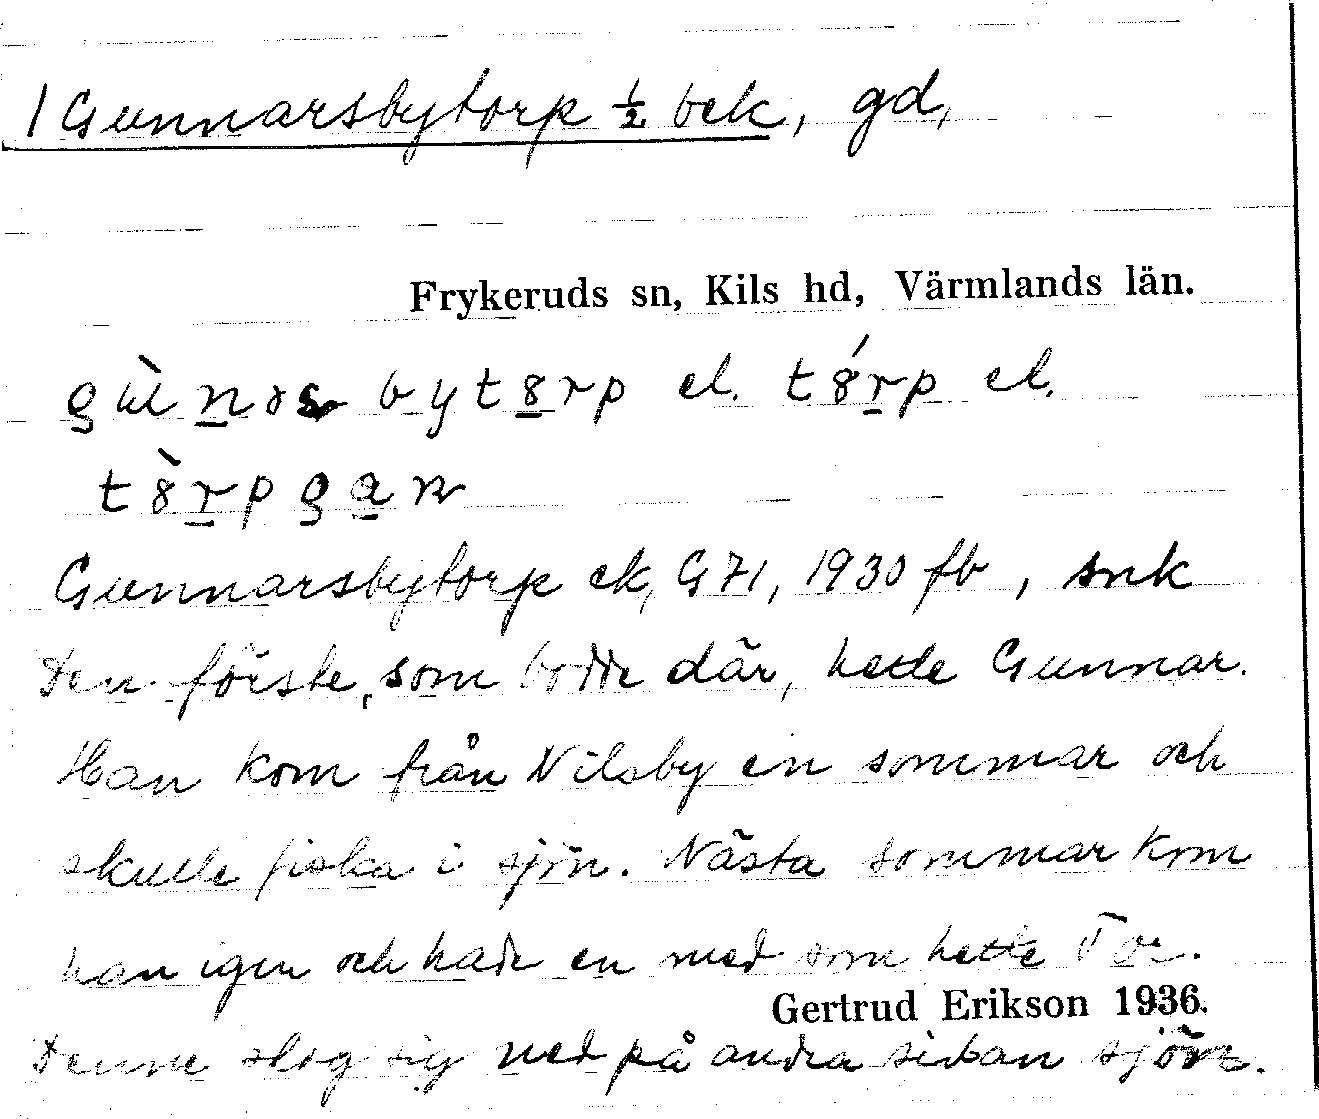 1 Gunnarsbytorp ½ bek, gd,
Frykeruds sn, Kils hd, Värmlands län.
bytorp el. tórp el.
Gunnarsbytorp ek, G71, 1930 fb, snk
Den förste, som bodde där, hette Gunnar.
Han kom från Nilsby en sommar och
skulle fiska i sjön. Nästa sommar kom
han igen och hade en med som hette Tor.
Gertrud Erikson 1936.
Denne slog sig ned på andra sidan sjön.